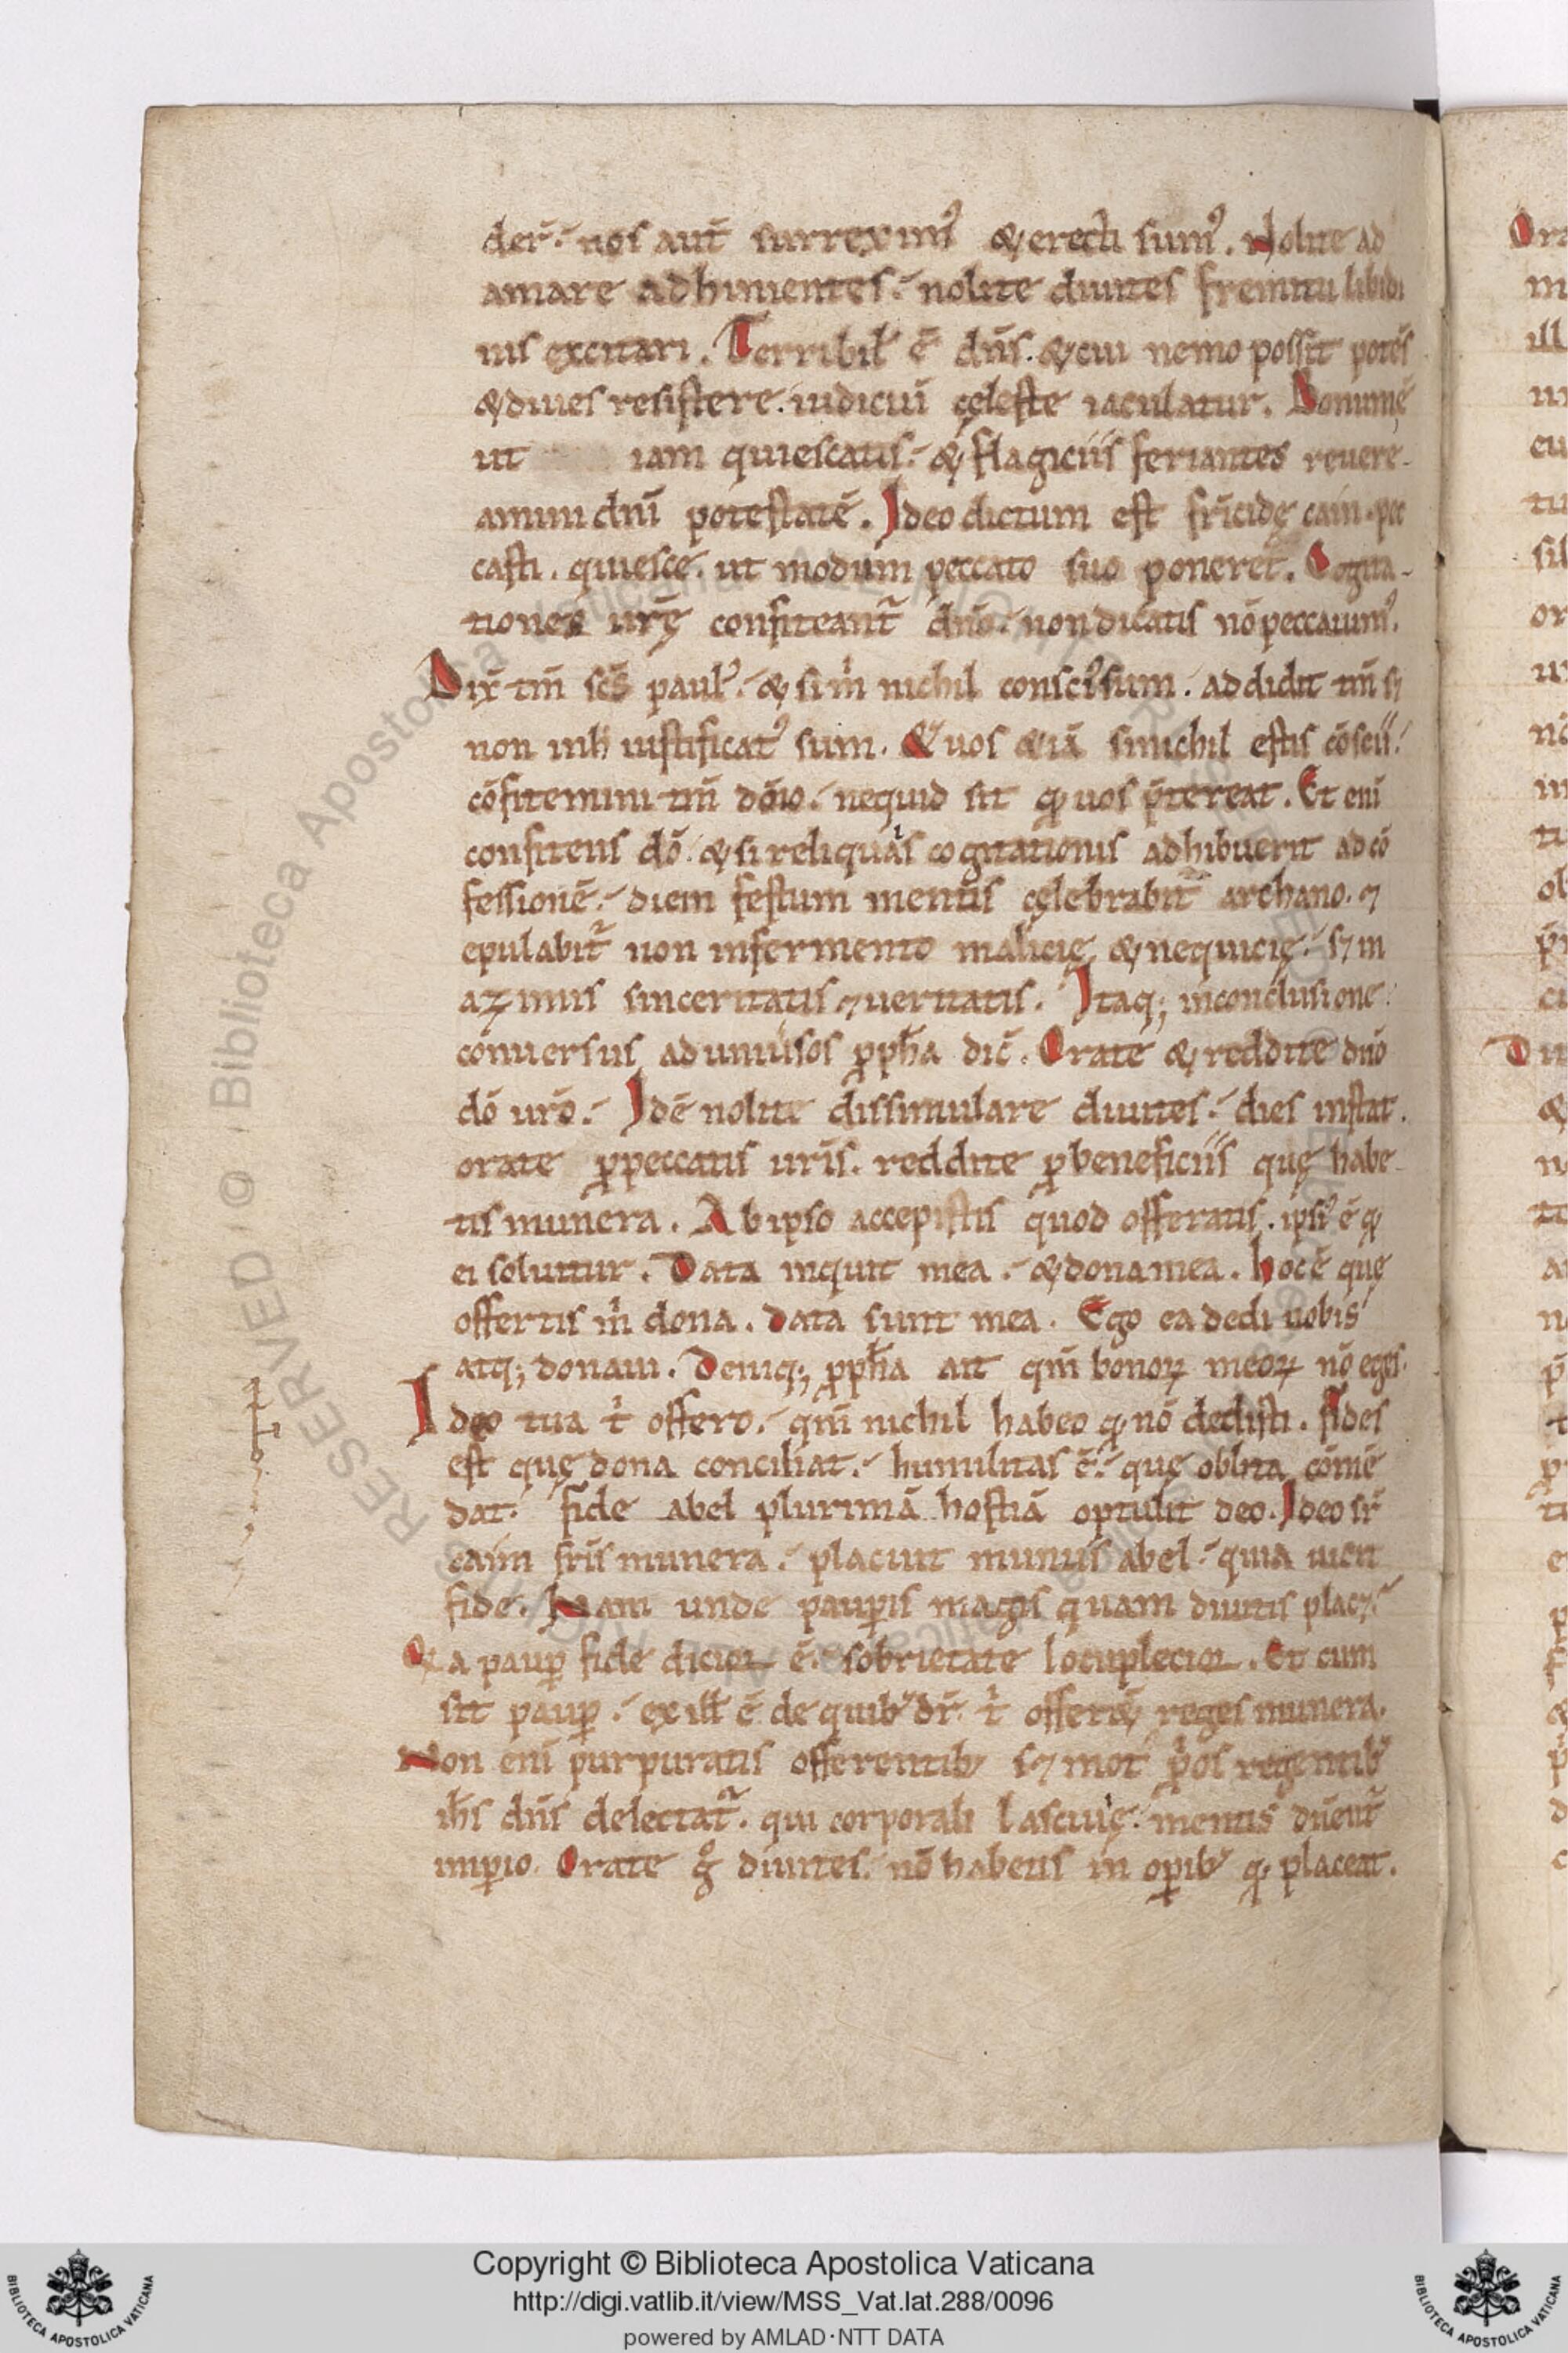 der̄. nos aut̄ surreximꝰ & erecti sumꝰ. Nolite ad
amare adhinientes. nolite diuites fremitu libidi
nis excitari. Terribil̓ ē dn̄s. & cui nemo possit potēs
& diues resistere. iudiciū cęleste iaculatur.
ut iam quiescatis. & flagiciis feriantes reuere-
amini dn̄i potestatē. Ideo dictum est fr̄icidę cain. pec
casti. quiesce. ut modum peccato suo poneret. Cogita-
tiones ur̄ę confiteant᷑ dn̄o. non dicatis nō peccauimꝰ.
Dix̄ tm̄ sc̄s paulꝰ. & si m̓ nichil consciꝰ sum. addidit tm̄ sꝫ
non in h̓ iustificatꝰ sum. & uos & iā si nichil estis cōscii.
cōfitemini tm̄ dōio. nequid sit qđ uos p̄tereat. Et eni
confitens dō. & si reliquás cogitationis adhibuerit ad cō
fessionē. diem festum mentis cęlebrabit archano. ⁊
epulabit᷑ non in fermento malicię & nequicię. sꝫ in
azimis sinceritatis ⁊ ueritatis. Itaq; in conclusione
conuersus ad uniuīsos ꝓph̄a dic̄. Orate & reddite dn̄o
dō ur̄o. Idē nolite dissimulare diuites. dies instat.
orate ꝓ peccatis ur̄is. reddite ꝓ beneficiis quę habe-
tis munera. Ab ipso accepistis quod offeratis. ipsiꝰ ē qđ
ei soluitur. Data inquit mea. & dona mea. hoc ē quę
offertis m̓ dona. data sunt mea. Ego ea dedi uobis
atq; donaui. Deniq; ꝓph̄a ait qm̄ bonoꝝ meoꝝ nō eges.
Ideo tua t̓ offero. qm̄ nichil habeo qđ nō dedisti. fides
est quę dona conciliat. humilitas ē. quę oblita cōmē
dat. fide abel plurimā hostiā optulit deo. Ideo sr̄
caim fr̄is munera. placuit munus abel. quia uicit
fide. Nam unde pauꝑis magis quam diuitis placꝫ.
Q̓a pauꝑ fide dicior ē. sobrietate locuplecior. Et cum
sit pauꝑ. ex ill̓ ē de quibꝰ dr̄. t̓ offer& reges munera.
Non eni purpuratis offerentibꝰ sꝫ mot̓ p̓os regentibꝰ
ih̄s dn̄s delectat᷑. qui corporali lasciuię. mentis dn̄ent᷑
imꝑio. Orate g̊ diuites. nō habetis in oꝑibꝰ qđ placeat.
Copyright © Biblioteca Apostolica Vaticana
http://digi.vatlib.it/view/MSS_Vat.lat.288/0096
powered by AMLAD·NTT DATA